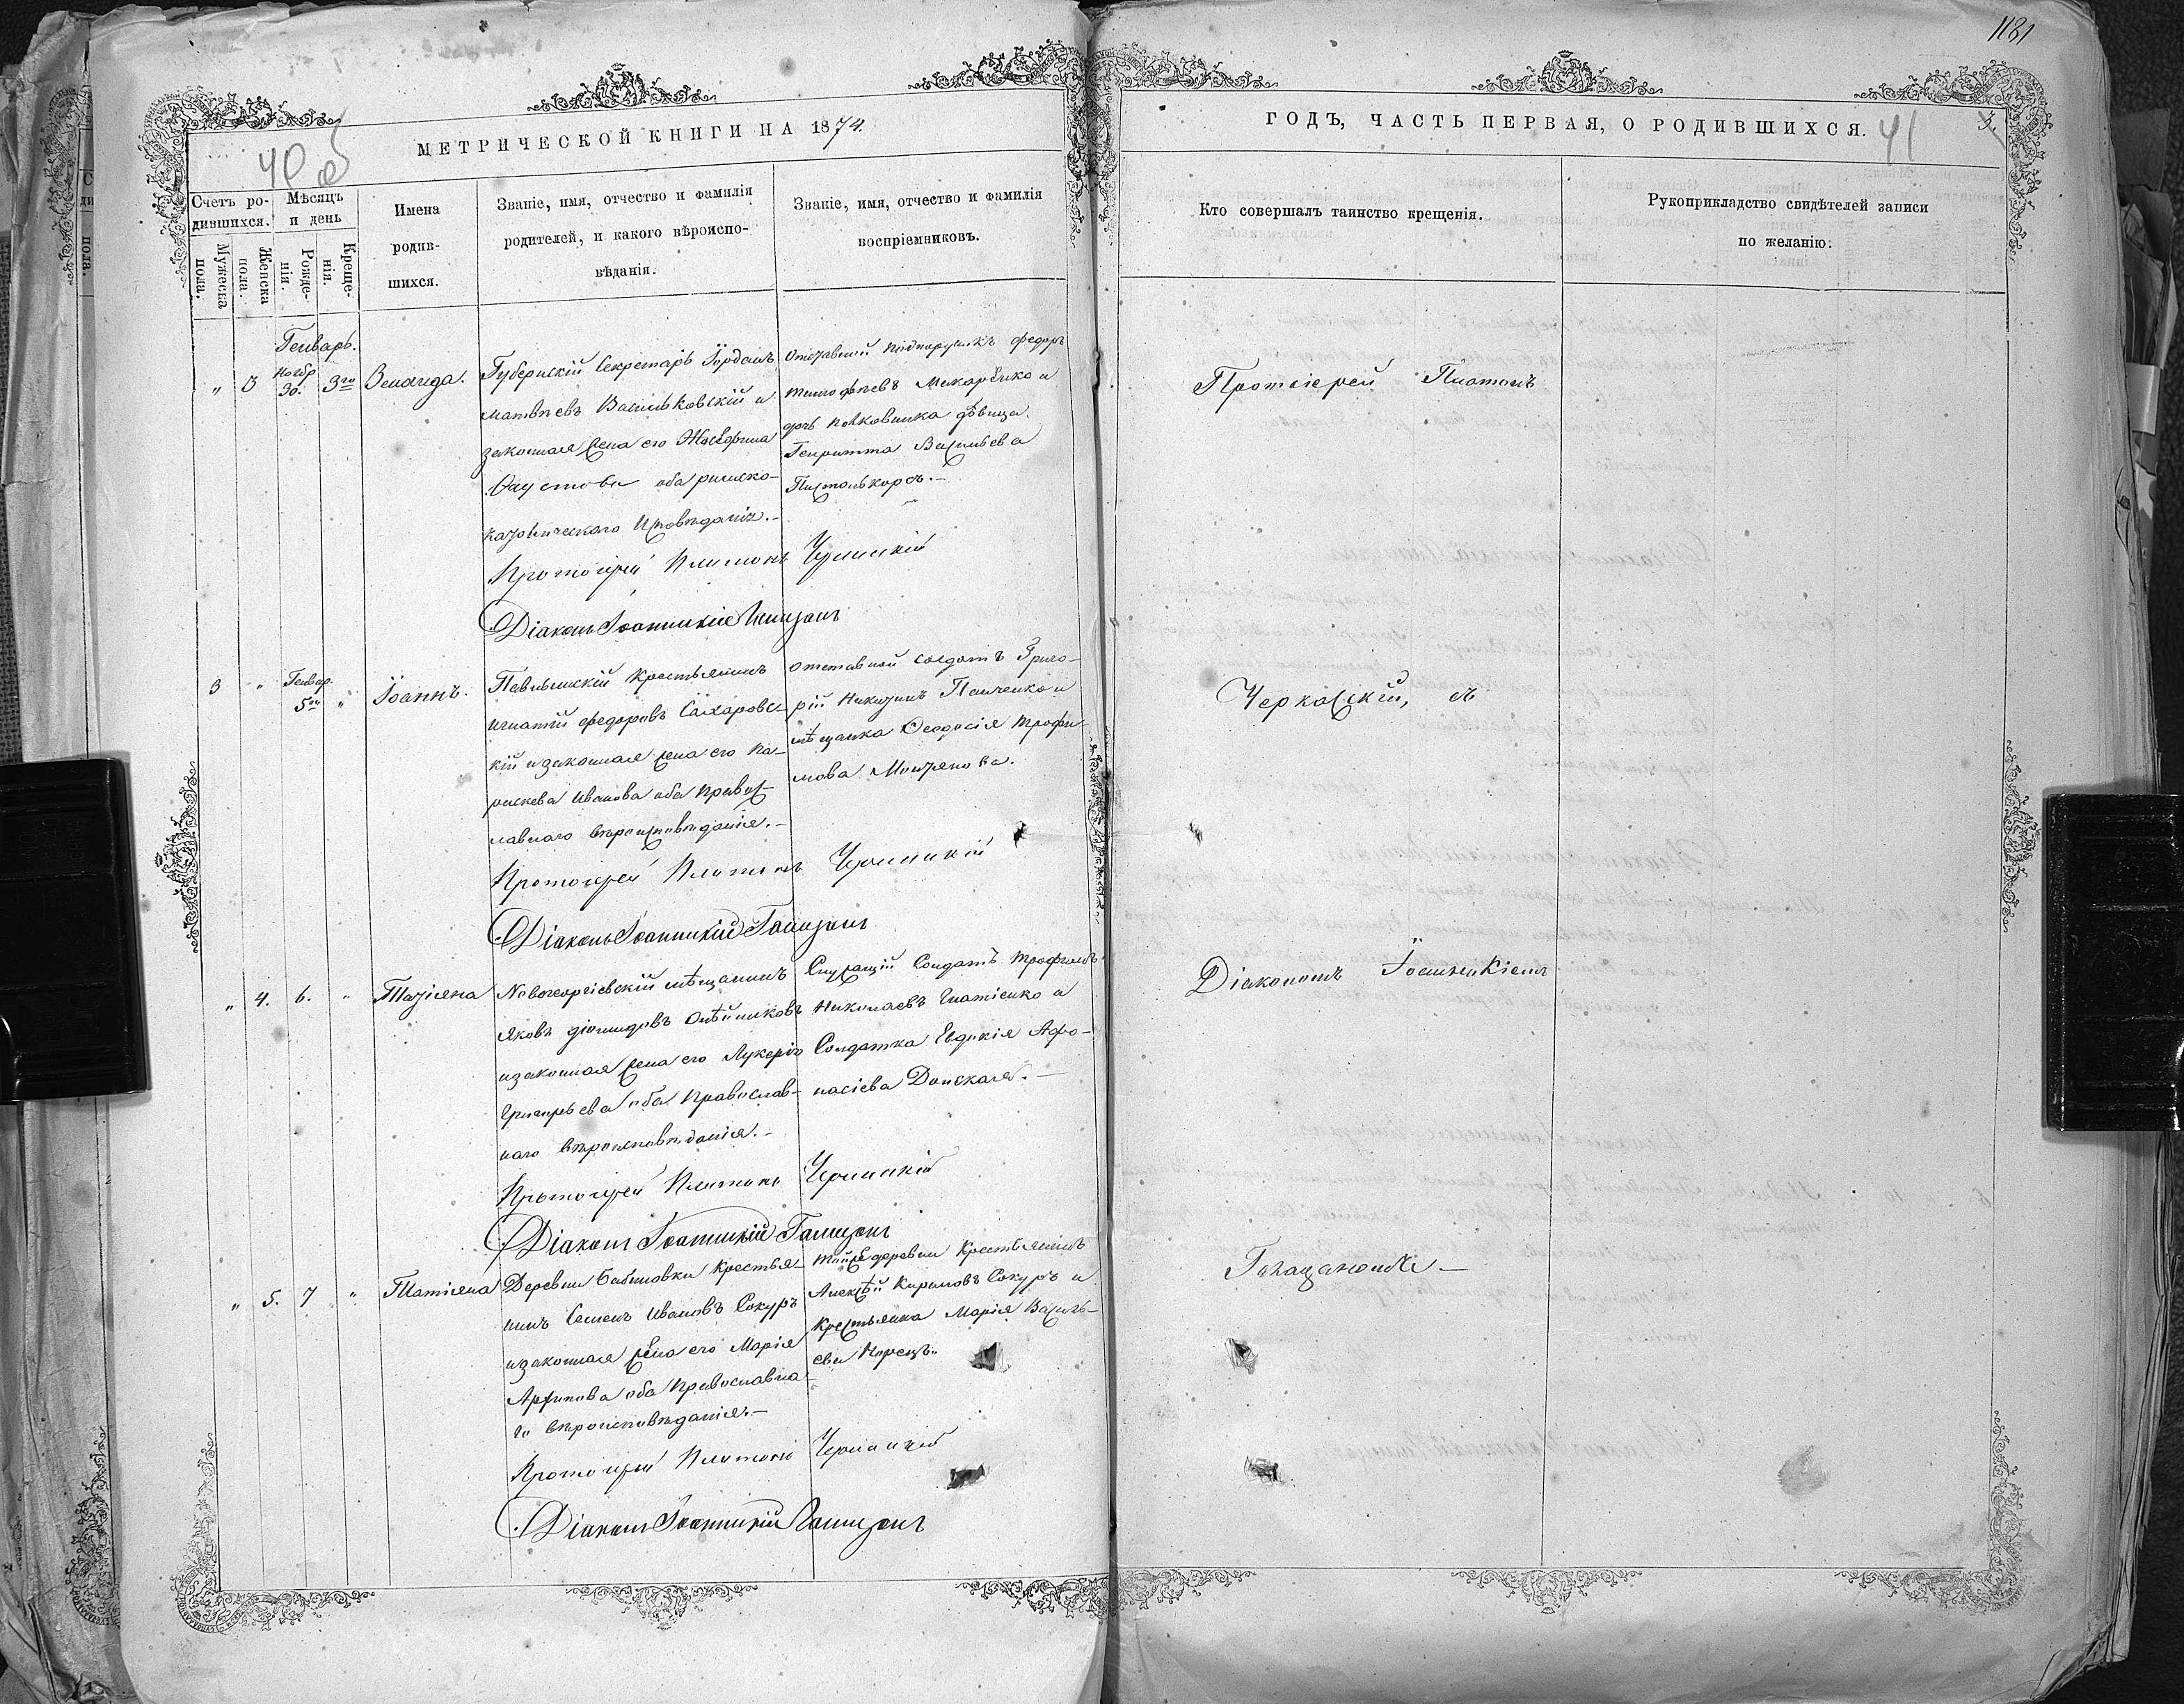 1181
МЕТРИЧЕСКОЙ КНИГИ НА 1874.
40 об
ГОДЪ, ЧАСТЬ ПЕРВАЯ, О РОДИВШИХСЯ.
41
3.
Счетъ ро-
дившихся.
Мужеска
пола.
Женска
пола.
Мѣсяцъ
и день
Рожде-
нія.
Креще-
нія.
Имена
родив-
шихся.
Званіе, имя, отчество и фамилія
родителей, и какого вѣроиспо-
вѣданія.
Званіе, имя, отчество и фамилія
воспріемниковъ.
Кто совершалъ таинство крещенія.
Рукоприкладство свидѣтелей записи
по желанію.
Генварь.
" 3 Ноябр 30. 3го Зенаида.
Губернскій Секретарь Іорданъ
Матвѣевъ Васильковскій и
законная жена его Жозефина
оба римско-
католическаго исповѣданія.-
Отставной подпоручикъ Федоръ
Тимофѣевъ Макаренко и
дочь полковника дѣвица
Генріетта Васильева
Пистолькорсъ.-
Протоіерей Платонъ
Протоіерей Платонъ
Діаконъ Іоанникій
3 " Генвар. 5го " Іоаннъ.
Павлышскій крестьянинъ
Игнатій Федоровъ Сахаровс-
кій и законная жена его Па-
раскева Иванова оба правос-
лавнаго вѣроисповѣданія.-
Отставной солдатъ Григо-
рій Никитинъ Панченко и
мѣщанка Феодосія Трофи-
мова
Черкасскій, съ
Протоіерей Платонъ
Діаконъ Іоанникій
" 4. 6. " Татіяна
Новогеоргіевскій мѣщанинъ
Яковъ Діомидовъ Олѣйниковъ
и законная жена его Лукерія
Григорьева оба православ-
наго вѣроисповѣданія.-
Служащій солдатъ Трофимъ
Николаевъ Игнатенко и
солдатка Евдокія Афа-
насіева Донская.-
Діакономъ Іоанникіемъ
Протоіерей Платонъ
Діаконъ Іоанникій
" 5. 7 " Татіяна
Деревни Бабиновки крестья-
нинъ Семенъ Ивановъ Сокуръ
и законная жена его Марія
оба православна-
го вѣроисповѣданія.-
Той же деревни крестьянинъ
Алексѣй Кириловъ Сокуръ и
крестьянка Марія Василь-
ева
Протоіерей Платонъ
Діаконъ Іоанникій